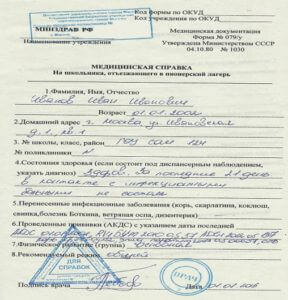 Код формы по ОКУД
Код учреждения по ОКУД
МИНЗДРАВ РФ
Наименование учреждения
Медицинская документация
Форма № 079/у
Утверждена Министерством СССР
04.10.80 № 1030
МЕДИЦИНСКАЯ СПРАВКА
На школьника, отъезжающего в пионерский лагерь
1.Фамилия, Имя, Отчество
Иванов Иван Иванович
Возраст 01.01.2002
2.Домашний адрес г. Москва, ул. Ивановская
д. 1, кв. 1
3. № школы, класс, район ГОУ СОШ 124
№ поликлиники
4.Состояния здоровья (если состоит под диспансерным наблюдением,
указать диагноз) Здоров. За последние 21 день
в контакте с инфекционными
больными не
5.Перенесенные инфекционные заболевания (корь, скарлатина, коклюш,
свинка,болезнь Боткина, ветряная оспа, дизентерия)
6.Проведенные прививки (АКДС) с указанием даты последней
7.Физическое развитие (группа) основная
8.Рекомендуемый режим общий
ДЛЯ
СПРАВОК
ВРАЧ
Подпись врача